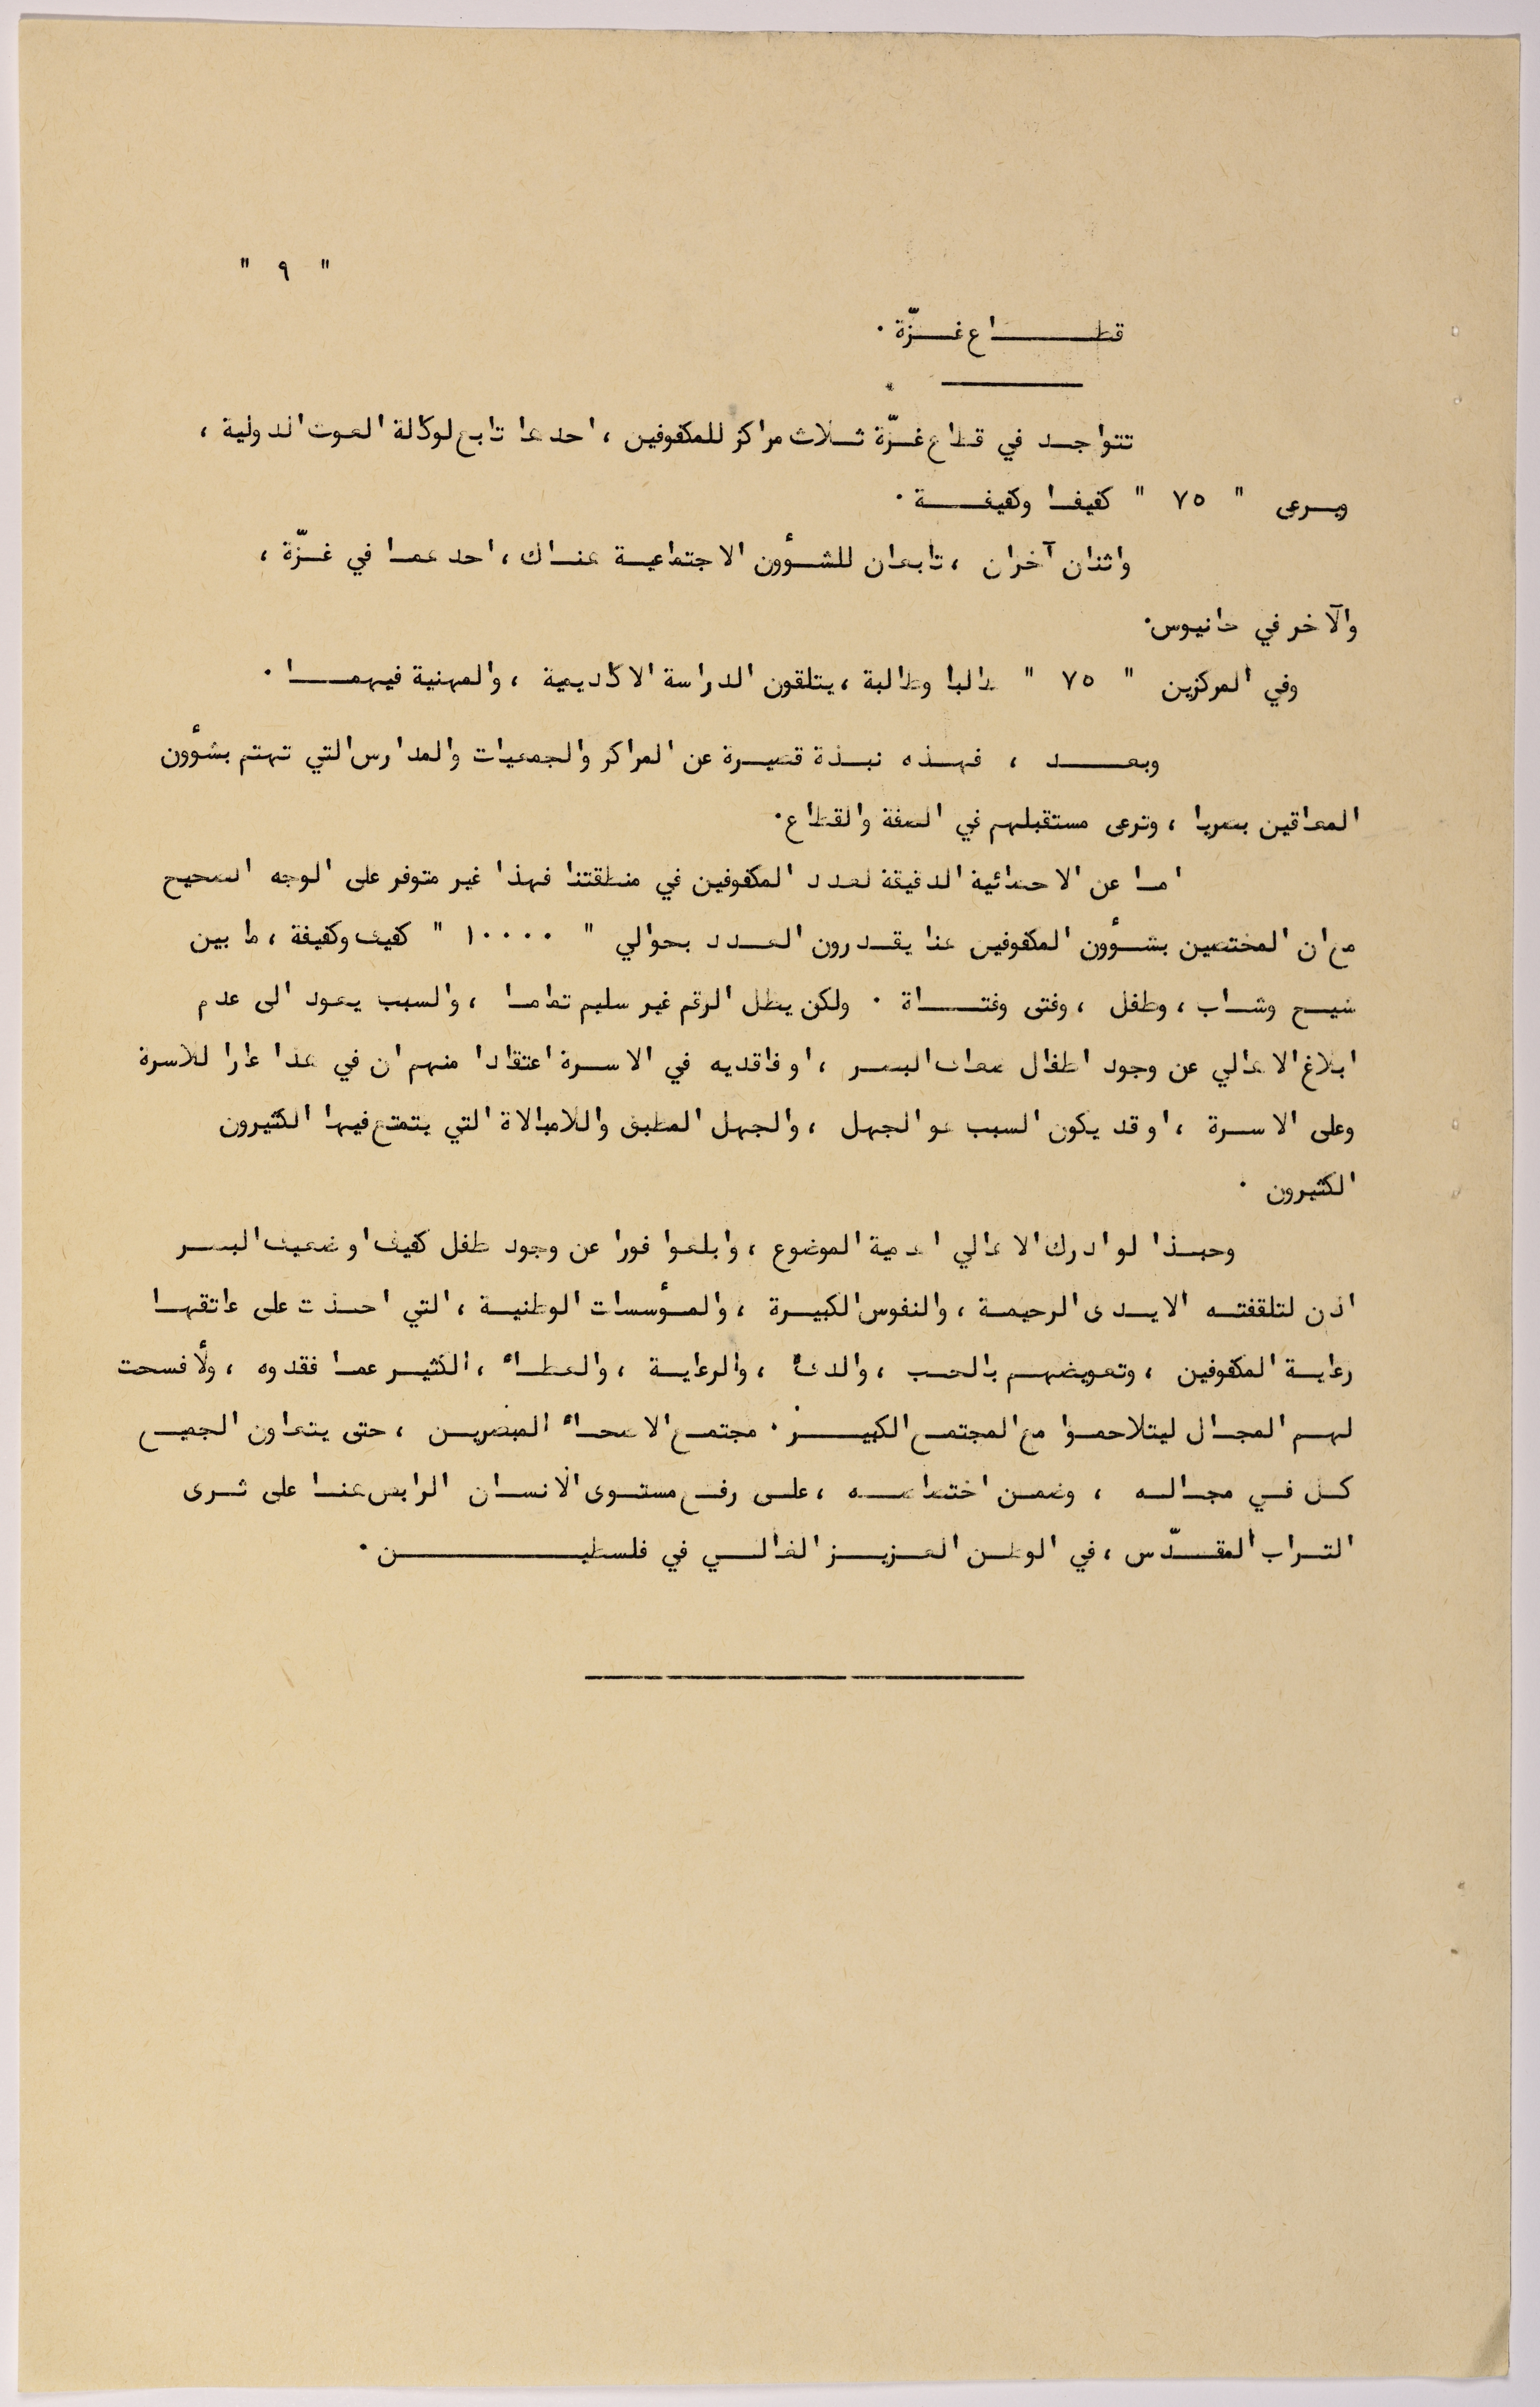 " ٩ "
قطـــــاع غـــزّة ٠
تتواجـد في قطاع غـزّة ثـلاث مراكز للمكفوفين ، احدها تابع لوكالة الغوث الدولية ،
ويـرعى " ٧٥ " كفيفـا وكفيفـــة ٠
واثنان آخران ، تابعان للشـؤون الاجتماعيـة هنـاك ، احدهمـا في غـزّة ،
والآخر في خانيوس٠
وفي المركزين " ٧٥ " طالبا وطالبة ، يتلقون الدراسة الاكاديمية ، والمهنية فيهمـــا ٠
وبعـــد ، فهـذه نبـذة قصيـرة عن المراكز والجمعيات والمدارس التي تهتم بشؤون
المعاقين بصريا ، وترعى مستقبلهم في الضفة والقطاع٠
امـا عن الاحصائية الدقيقة لعدد المكفوفين في منطقتنا فهذا غير متوفر على الوجه الصحيح
مع ان المختصين بشـؤون المكفوفين هنا يقـدرون العـدد بحوالي " ١٠٠٠٠ " كفيف وكفيفة ، ما بين
شيـخ وشـاب ، وطفل ، وفتى وفتــاة ٠ ولكن يظل الرقم غير سليم تمامـا ، والسبب يعـود الى عدم
ابلاغ الاهالي عن وجود اطفال ضعاف البصـر ، او فاقديه في الاسـرة اعتقادا منهم ان في هذا عارا للاسرة
وعلى الاسـرة ، او قد يكون السبب هو الجهل ، والجهل المطبق واللامبالاة التي يتمتع فيها الكثيرون
الكثيرون ٠
وحبـذا لو ادرك الاهالي اهمية الموضوع ، وابلغوا فورا عن وجود طفل كفيف او ضعيف البصـر
اذن لتلقفتـه الايـدى الرحيمـة ، والنفوس الكبيـرة ، والمـؤسسات الوطنيـة ، التي اخـذت على عاتقهـا
رعايـة المكفوفين ، وتعويضهـم بالحـب ، والدفء ، والرعايـة ، والعطـاء ، الكثيـر عمـا فقدوه ، ولأفسحت
لهـم المجـال ليتلاحمـوا مع المجتمـع الكبيــر ٠ مجتمـع الاصحـاء المبصريـن ، حتى يتعـاون الجميـع
كـل فـي مجـالـه ، وضمـن اختصاصـه ، علـى رفـع مستـوى الانسـان الرابض هنـا على ثـرى
التـراب المقـدّس ، في الوطـن العـزيـز الغالـي في فلسطيـــــن ٠